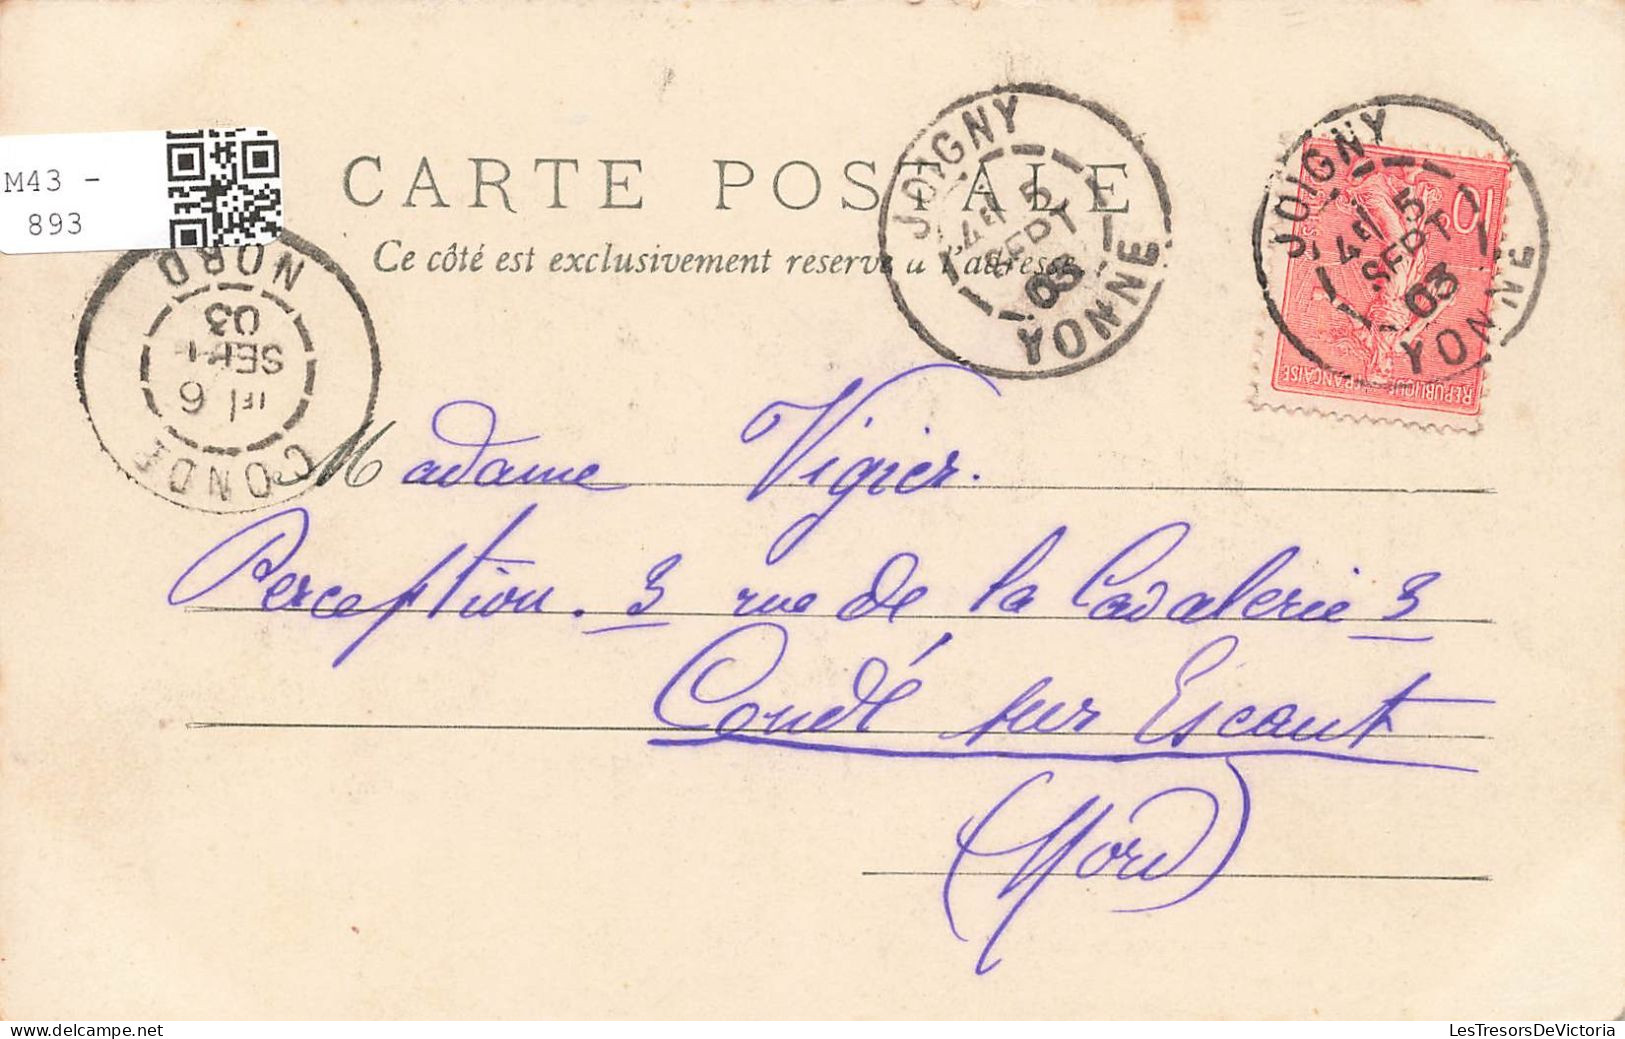 M43 -
893
CARTE POSTALE
Ce côté est exclusivement reservé à l'adresse
JOIGNY
5
SEPT
03
YONNE
JOIGNY
5
SEPT
03
YONNE
10
REPUBLIQUE FRANÇAISE
CONDE
6
SEPT
03
NORD
Madame Vigier.
Perception. 3 rue de la Cavalerie 3
Condé sur Escaut
(Nord)
LesTresorsDeVictoria